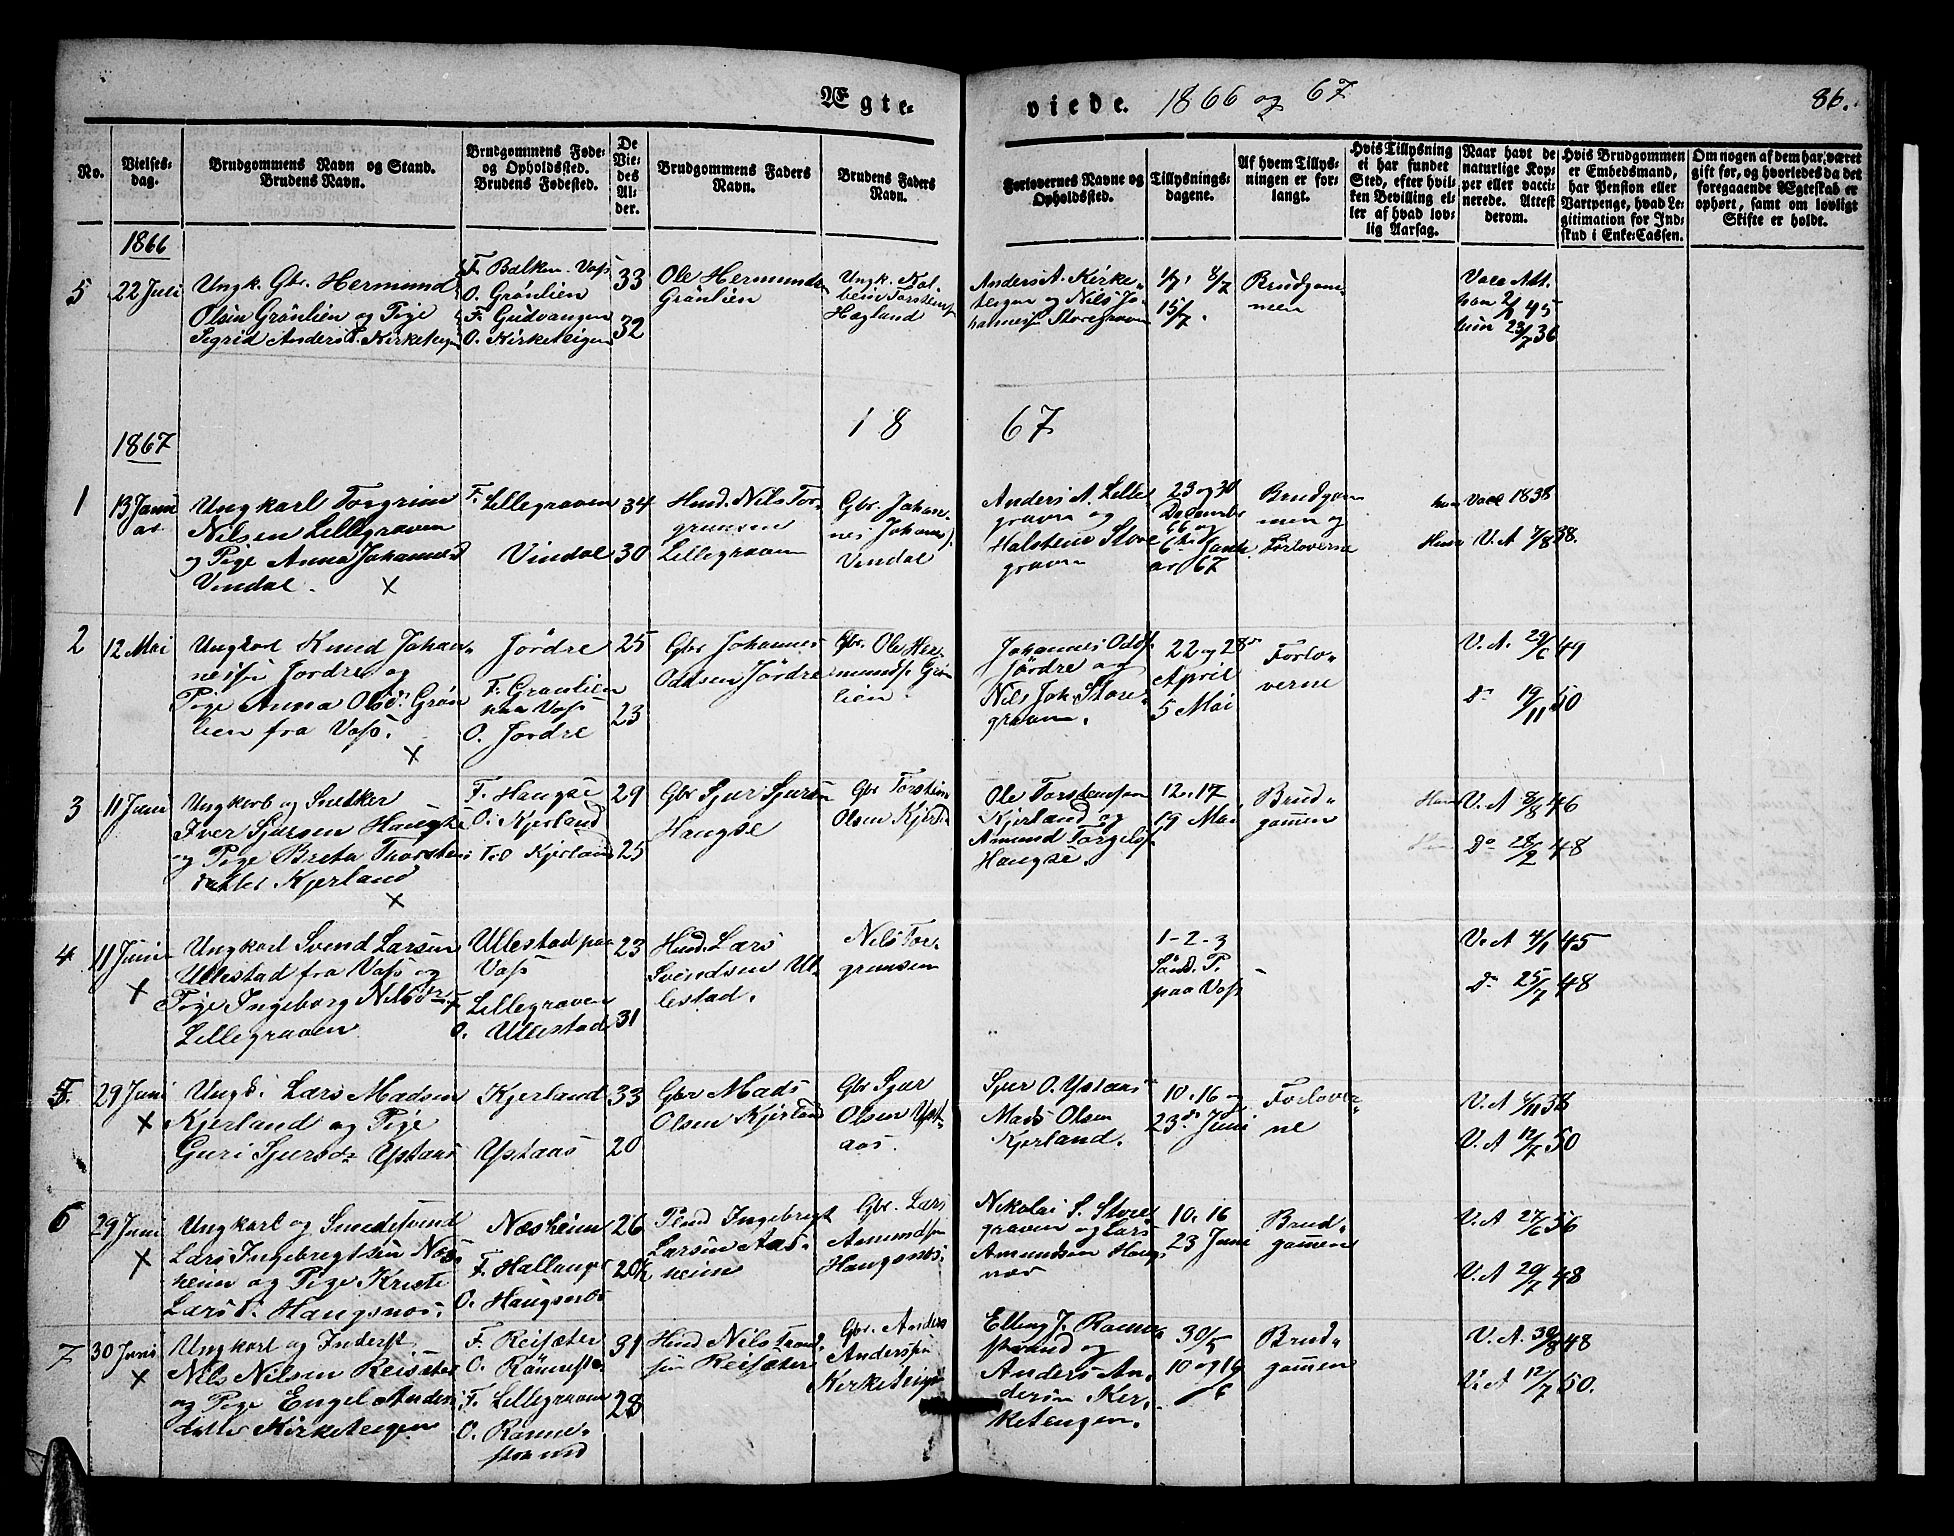 Ægte-
viede. 1866 og 67
86.
No.
Vielses-
dag.
Brudgommens Navn og Stand.
Brudens Navn.
Brudgommens Føde-
og Opholdssted.
Brudens Fødested.
De
Vie-
des
Al-
der.
Brudgommens Faders
Navn.
Brudens Faders
Navn.
Forlovernes Navne og
Opholdssted.
Tillysnings-
dagene.
Af hvem Tillys-
ningen er for-
langt.
Hvis Tillysning
ei har fundet
Sted, efter hvil-
ken Bevilling el-
ler af hvad lov-
lig Aarsag.
Naar havt de
naturlige Kop-
per eller vacci-
nerede. Attest
derom.
Hvis Brudgommen
er Embedsmand,
har Pension eller
Vartpenge, hvad Le-
gitimation for Ind-
skud i Enke-Cassen.
Om nogen af dem har været
gift før, og hvorledes da det
foregaaende Ægteskab er
ophørt, samt om lovligt
Skifte er holdt.
1866
5
22 Juli
Ungk. Gbr. Hermund
Olsen Grönlien og Pige
Sigrid Andersd. Kirketeigen
F. Bolken Voss
O. Grönlien
F. Gudvangen
O. Kirketeigen
33
32
Ole Hermundsen
Grönlien
Ungk.
Torstens
Hægland
Anders A. Kirke-
teigen og Nils Jo-
hanness. Storegraven
1/7, 8/7
15/7.
Brudgom-
men
Vacc. Att.
han 2/1 45
hun 23/7 36
1867
18
67
1
13 Janu
ar
Ungkarl Torgrim
Nilsen Lillegraven
og Pige Anna Johannesd
Vindal. X
F. Lillegraven
Vindal
34
30
Husd. Nils Tor-
grimsen
Lillegraven
Gbr. Johan-
nes Johanness.
Vindal
Anders A. Lille-
graven og
Halsten Store
graven
23 og 30
Decembr
66 og
6te Janu-
ar 67
Brudgom
men og
Forloverne
han Vacc 1838
Hun V. A 7/8 38.
2
12 Mai
Ungkarl Knud Johan-
ness. Jordre og
Pige Anna Olsd. Grön
lien fra Voss. X
Jördre
F. Grönlien
paa Voss
O. Jordre
25
23
Gbr Johannes
Oddsen Jördre
Gbr. Ole Her-
munds. Grön
lien
Johannes Odds.
Jördre og
Nils Joh. Store-
graven.
22 og 28de
April
5 Mai
Forlo-
verne
V. A. 29/6 49
Do 19/11 50
3
11 Juni
Ungkarl og Snekker
Iver Sjursen Haugse
og Pige Breta Thorsteins
datter Kjerland X
F. Haugse
O. Kjerland
F. O Kjerland
29
25
Gbr Sjur Sjursen
Haugse
Gbr Torstein
Olsen Kjerland
Ole Torstensen
Kjerland og
Amund Torgils.
Haugse.
12. 17
19 Mai
Brud-
gommen
Han V. A 8/8 46
Hun Do 28/2 48
4
11 Juni
X
Ungkarl Svend Larsen
Ullestad fra Voss og
Pige Ingeborg Nilsdr.
Lillegraven
Ullestad paa
Voss
F. Lillegraven
O. Ullestad
23
31
Husd. Lars
Svendsen Ul-
lestad.
Nils Tor-
grimsen
"
1 - 2 - 3
Sönd. P.
paa Voss
V. A 4/1 45
Do 25/7 48
5.
29 Juni
X
Ungk. Lars Madsen
Kjerland og Pige
Guri Sjursdr Ystaas
Kjerland
Ystaas
33
20
Gbr Mads
Olsen Kjerland
Gbr Sjur
Olsen Yst-
aas.
Sjur O. Ystaas
Mads Olsen
Kjerland.
10. 16 og
23de Juni
Forlover-
ne
V. A 4/11 38
V. A 12/7 50
6
29 Juni
X
Ungkarl og Smedesvend
Lars Ingebregtsen Næs
heim og Pige Kristi
Larsd. Haugsnæs.
Næsheim
F. Hallanger
O. Haugsnæs
26
20½
Ingebregt
Larsen Næs-
heim
Gbr. Lars
Amunds.
Haugsnæs.
Nikolai S. Store
graven og Lars
Amundsen Haugs
næs
10. 16
23 Juni
Brud-
gommen
V. A 27/6 56
V. A 29/7 48
7
30 Juni
X
Ungkarl og Inderst
Nils Nilsen Reisæter
og Pige Engel Anders
datter Kirketeigen
F. Reisæter
O. Römesstr.
F. Lillegraven
O. Röme-
strand
31
28
Husd Nils Trond-
sen Reisæter
Gbr. Anders
Anderssen
Kirketeigen
Elling J. Röme-
strand og
Anders An-
dersen Kir-
keteigen.
30/5
10 og 16
/6
Brud-
gommen
V. A. 30/8 48
V. A 12/7 50.